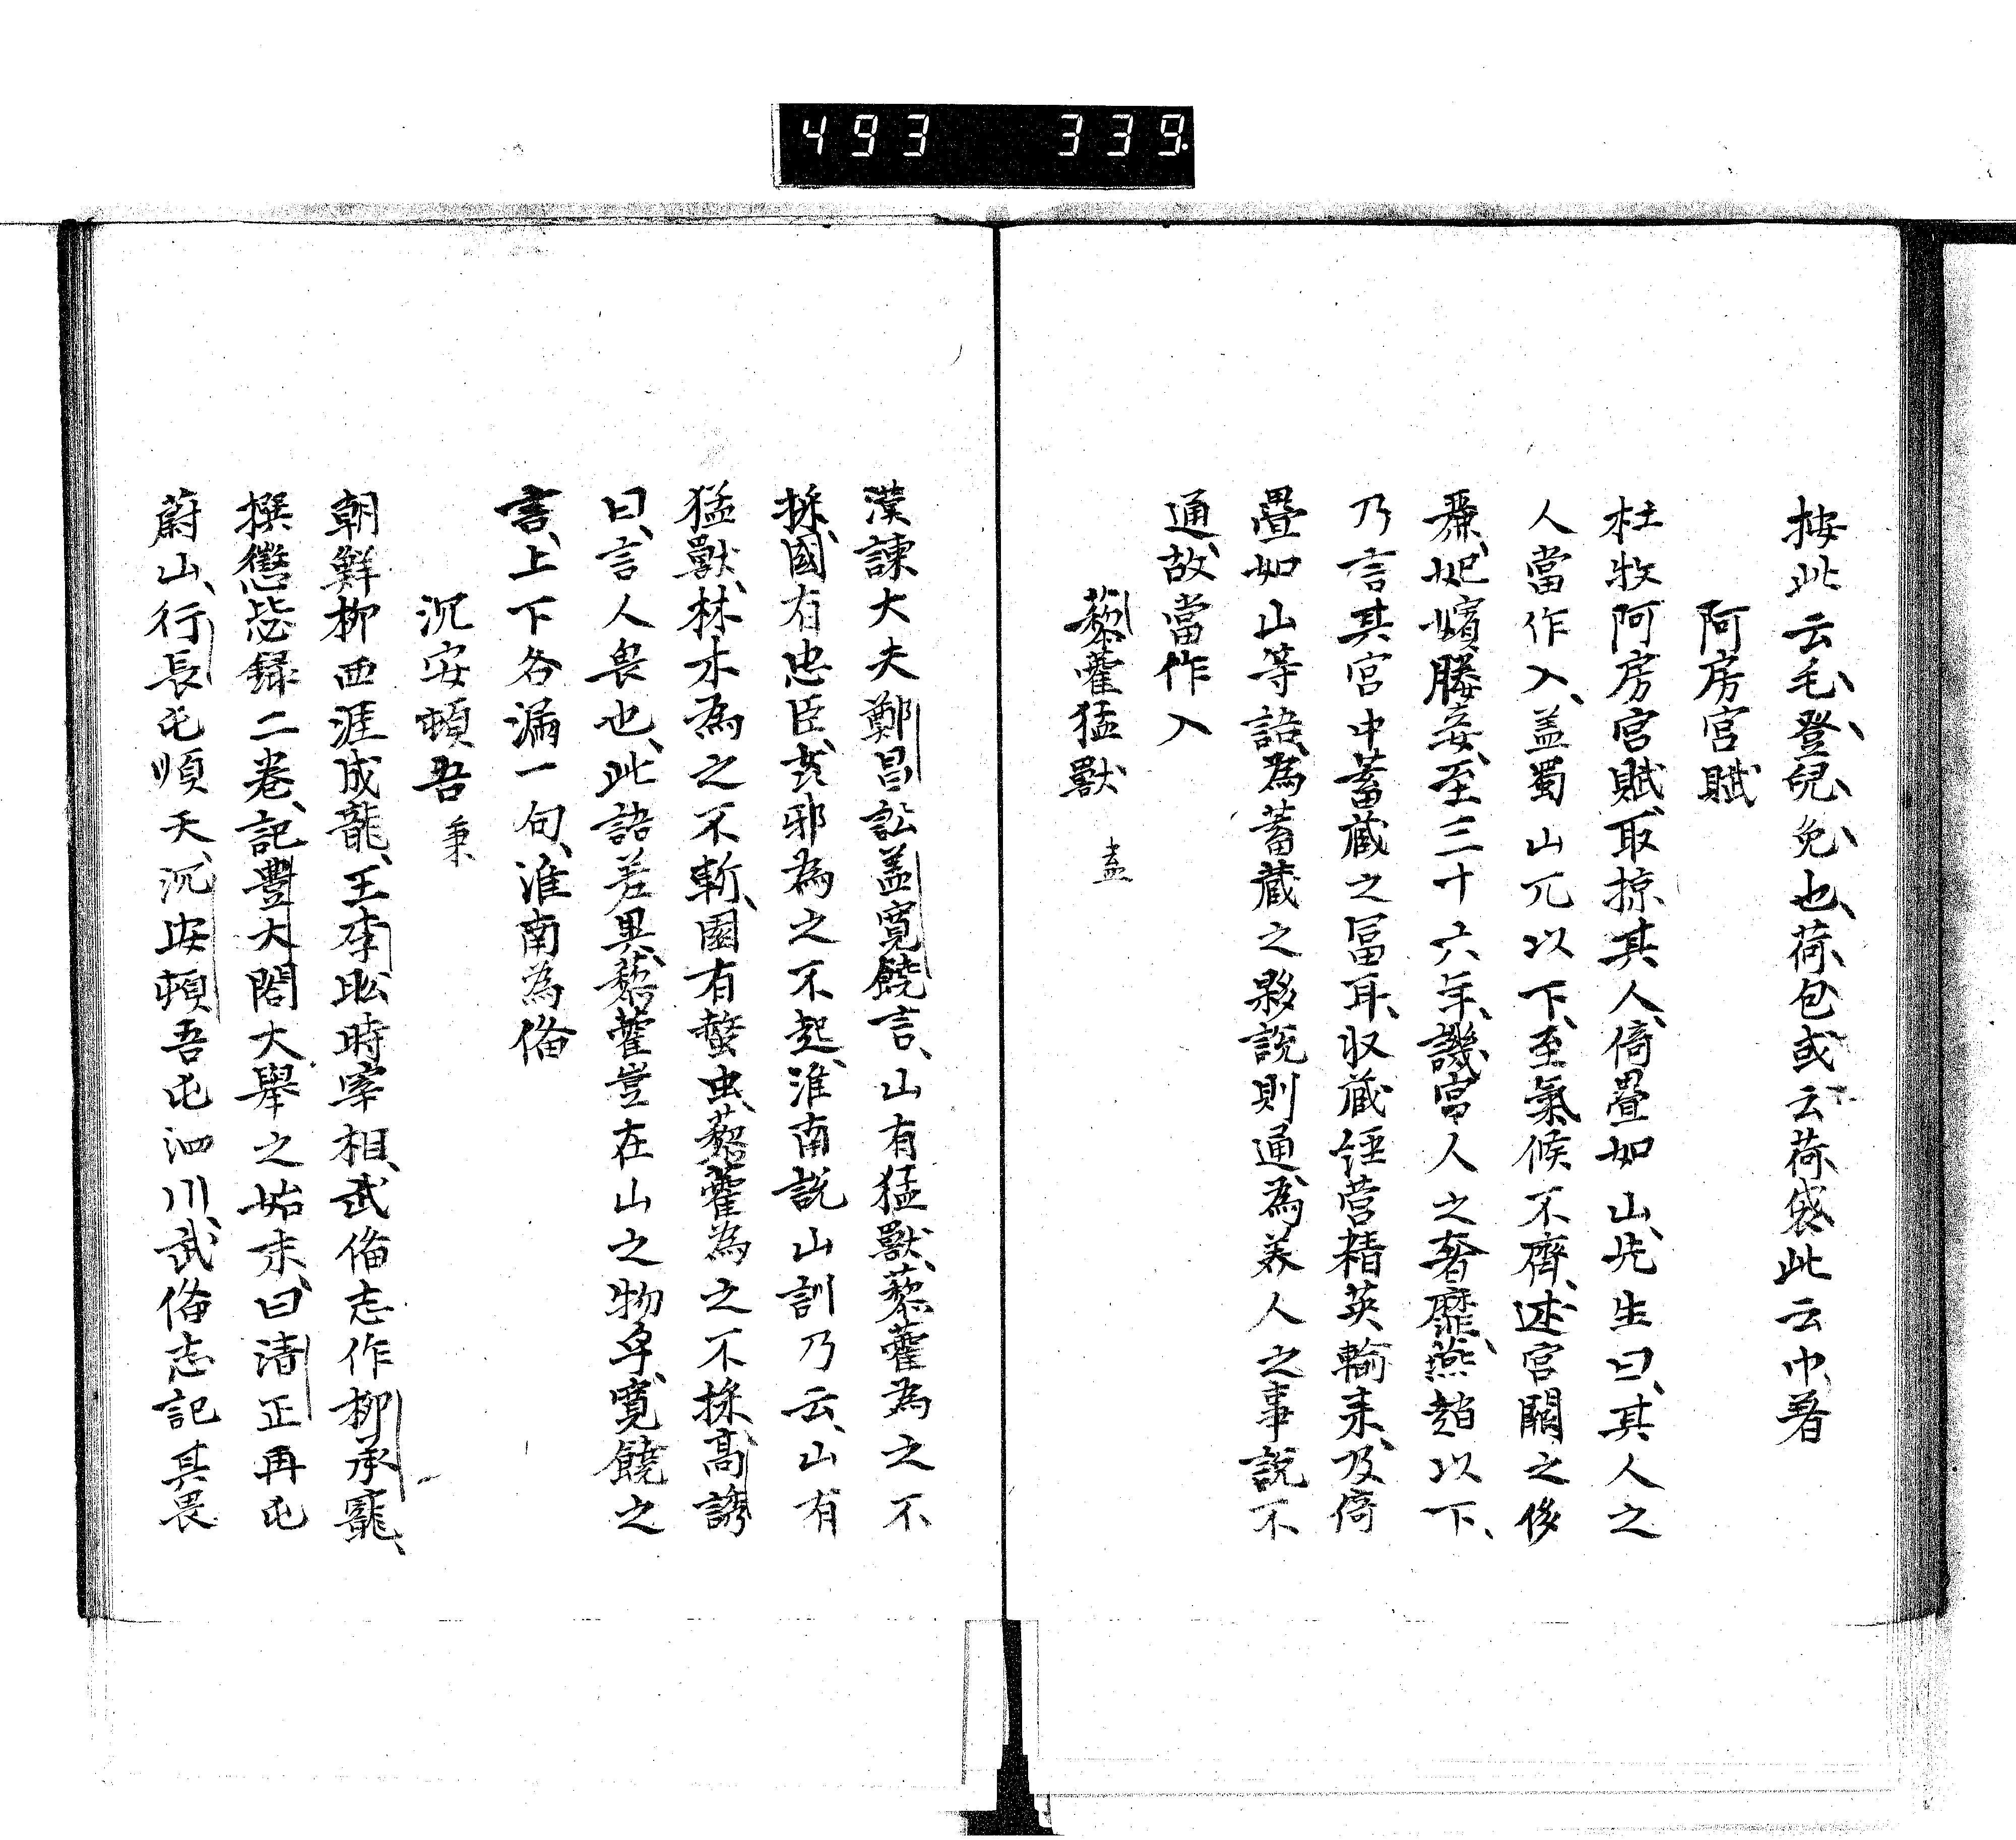 493 339.
按此云毛、登兒、免、也、荷包或云荷袋此云巾著
阿房宮賦
杜牧阿房宮賦、取掠其人、倚疊如山、先生曰、其人之
人當作入、盖蜀山兀以下、至氣候不齊、述宮闕之侈
麗、妃嬪媵妾、至三十六年、譏宮人之奢靡、燕趙以下、
乃言其宮中蓄藏之冨耳、収藏経営精英輸来、及倚
疊如山等語、為蓄藏之夥説則通、為美人之事説不
通、故當作入
藜藿猛獸 盖
漢諫大夫鄭昌訟盖寛饒言、山有猛獸、藜藿為之不
採、國有忠臣、姦邪為之不起、淮南説山訓乃云、山有
猛獸、林木為之不斬、園有螫虫、藜藿為之不採、高誘
曰、言人畏也、此語差異、藜藿豈在山之物乎、寛饒之
言、上下各漏一句、淮南為俻
沉安頓吾 秉
朝鮮柳西涯成龍、王李昖時宰相、武俻志作柳承寵、
撰懲毖録二巻、記豊大閤大舉之始末、曰清正再屯
蔚山、行長屯順天、沉安頓吾屯泗川、武俻志記其畏